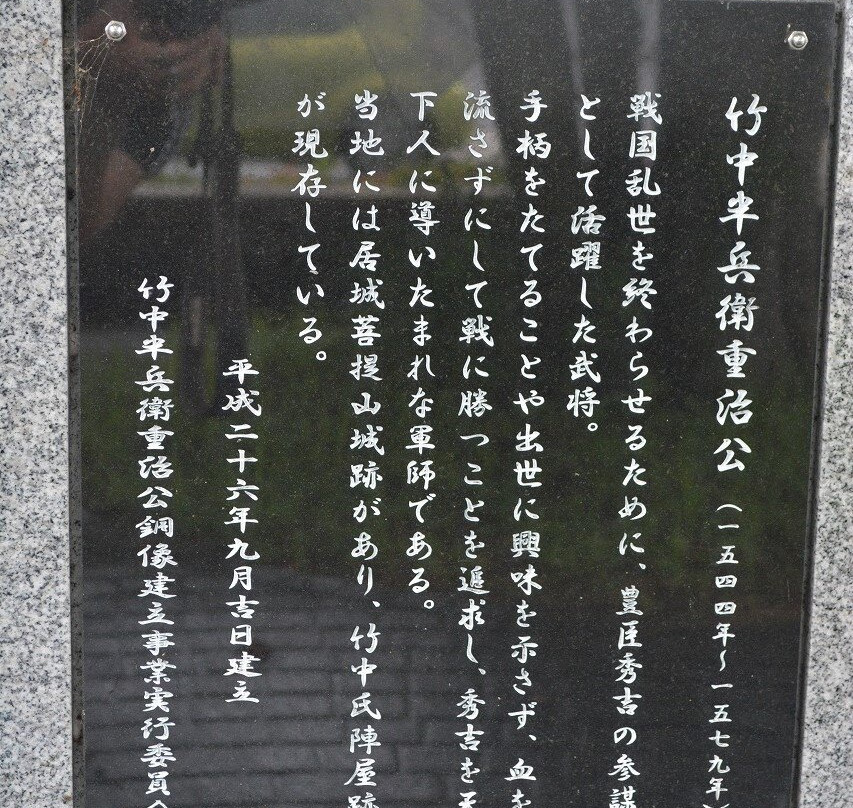 竹中半兵衛重治公（一五四四年～一五七九年
戦国乱世を終わらせるために、豊臣秀吉の参謀
として活躍した武将。
手柄をたてることや出世に興味を示さず、血を
流さずにして戦に勝つことを追求し、秀吉を天
下人に導いたまれな軍師である。
当地には居城菩提山城跡があり、竹中氏陣屋跡
が現存している。
平成二十六年九月吉日建立
竹中半兵衛重治公銅像建立事業実行委員会